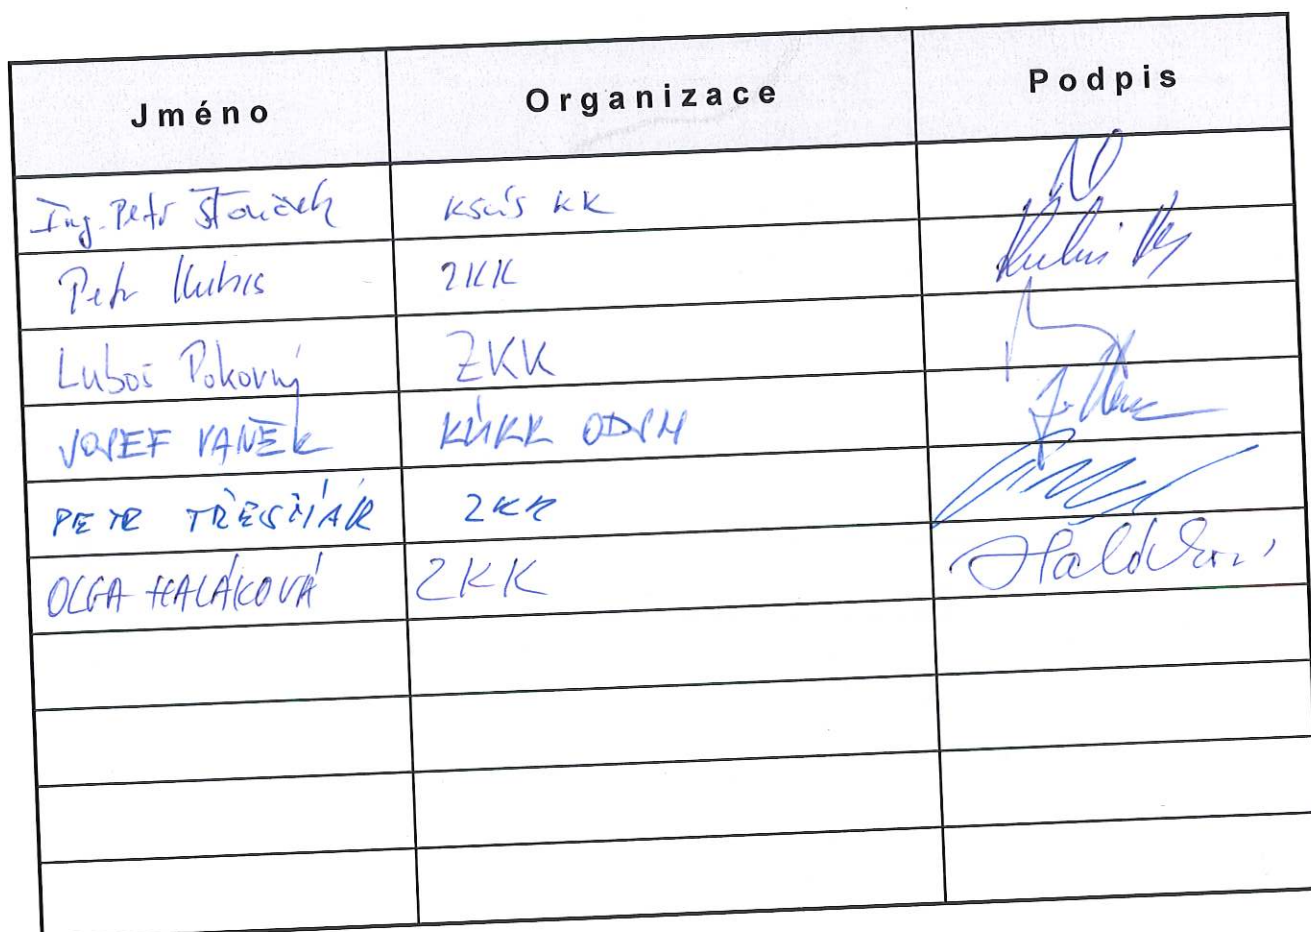 Jméno Organizace Podpis
Ing. Petr Štouček KSÚS KK
Petr Kubis ZKK
Luboš Pokorný ZKK
JOSEF VANĚK KÚKK ODSH
PETR TŘEŠŇÁK ZKK
OLGA HALÁKOVÁ ZKK Haláková